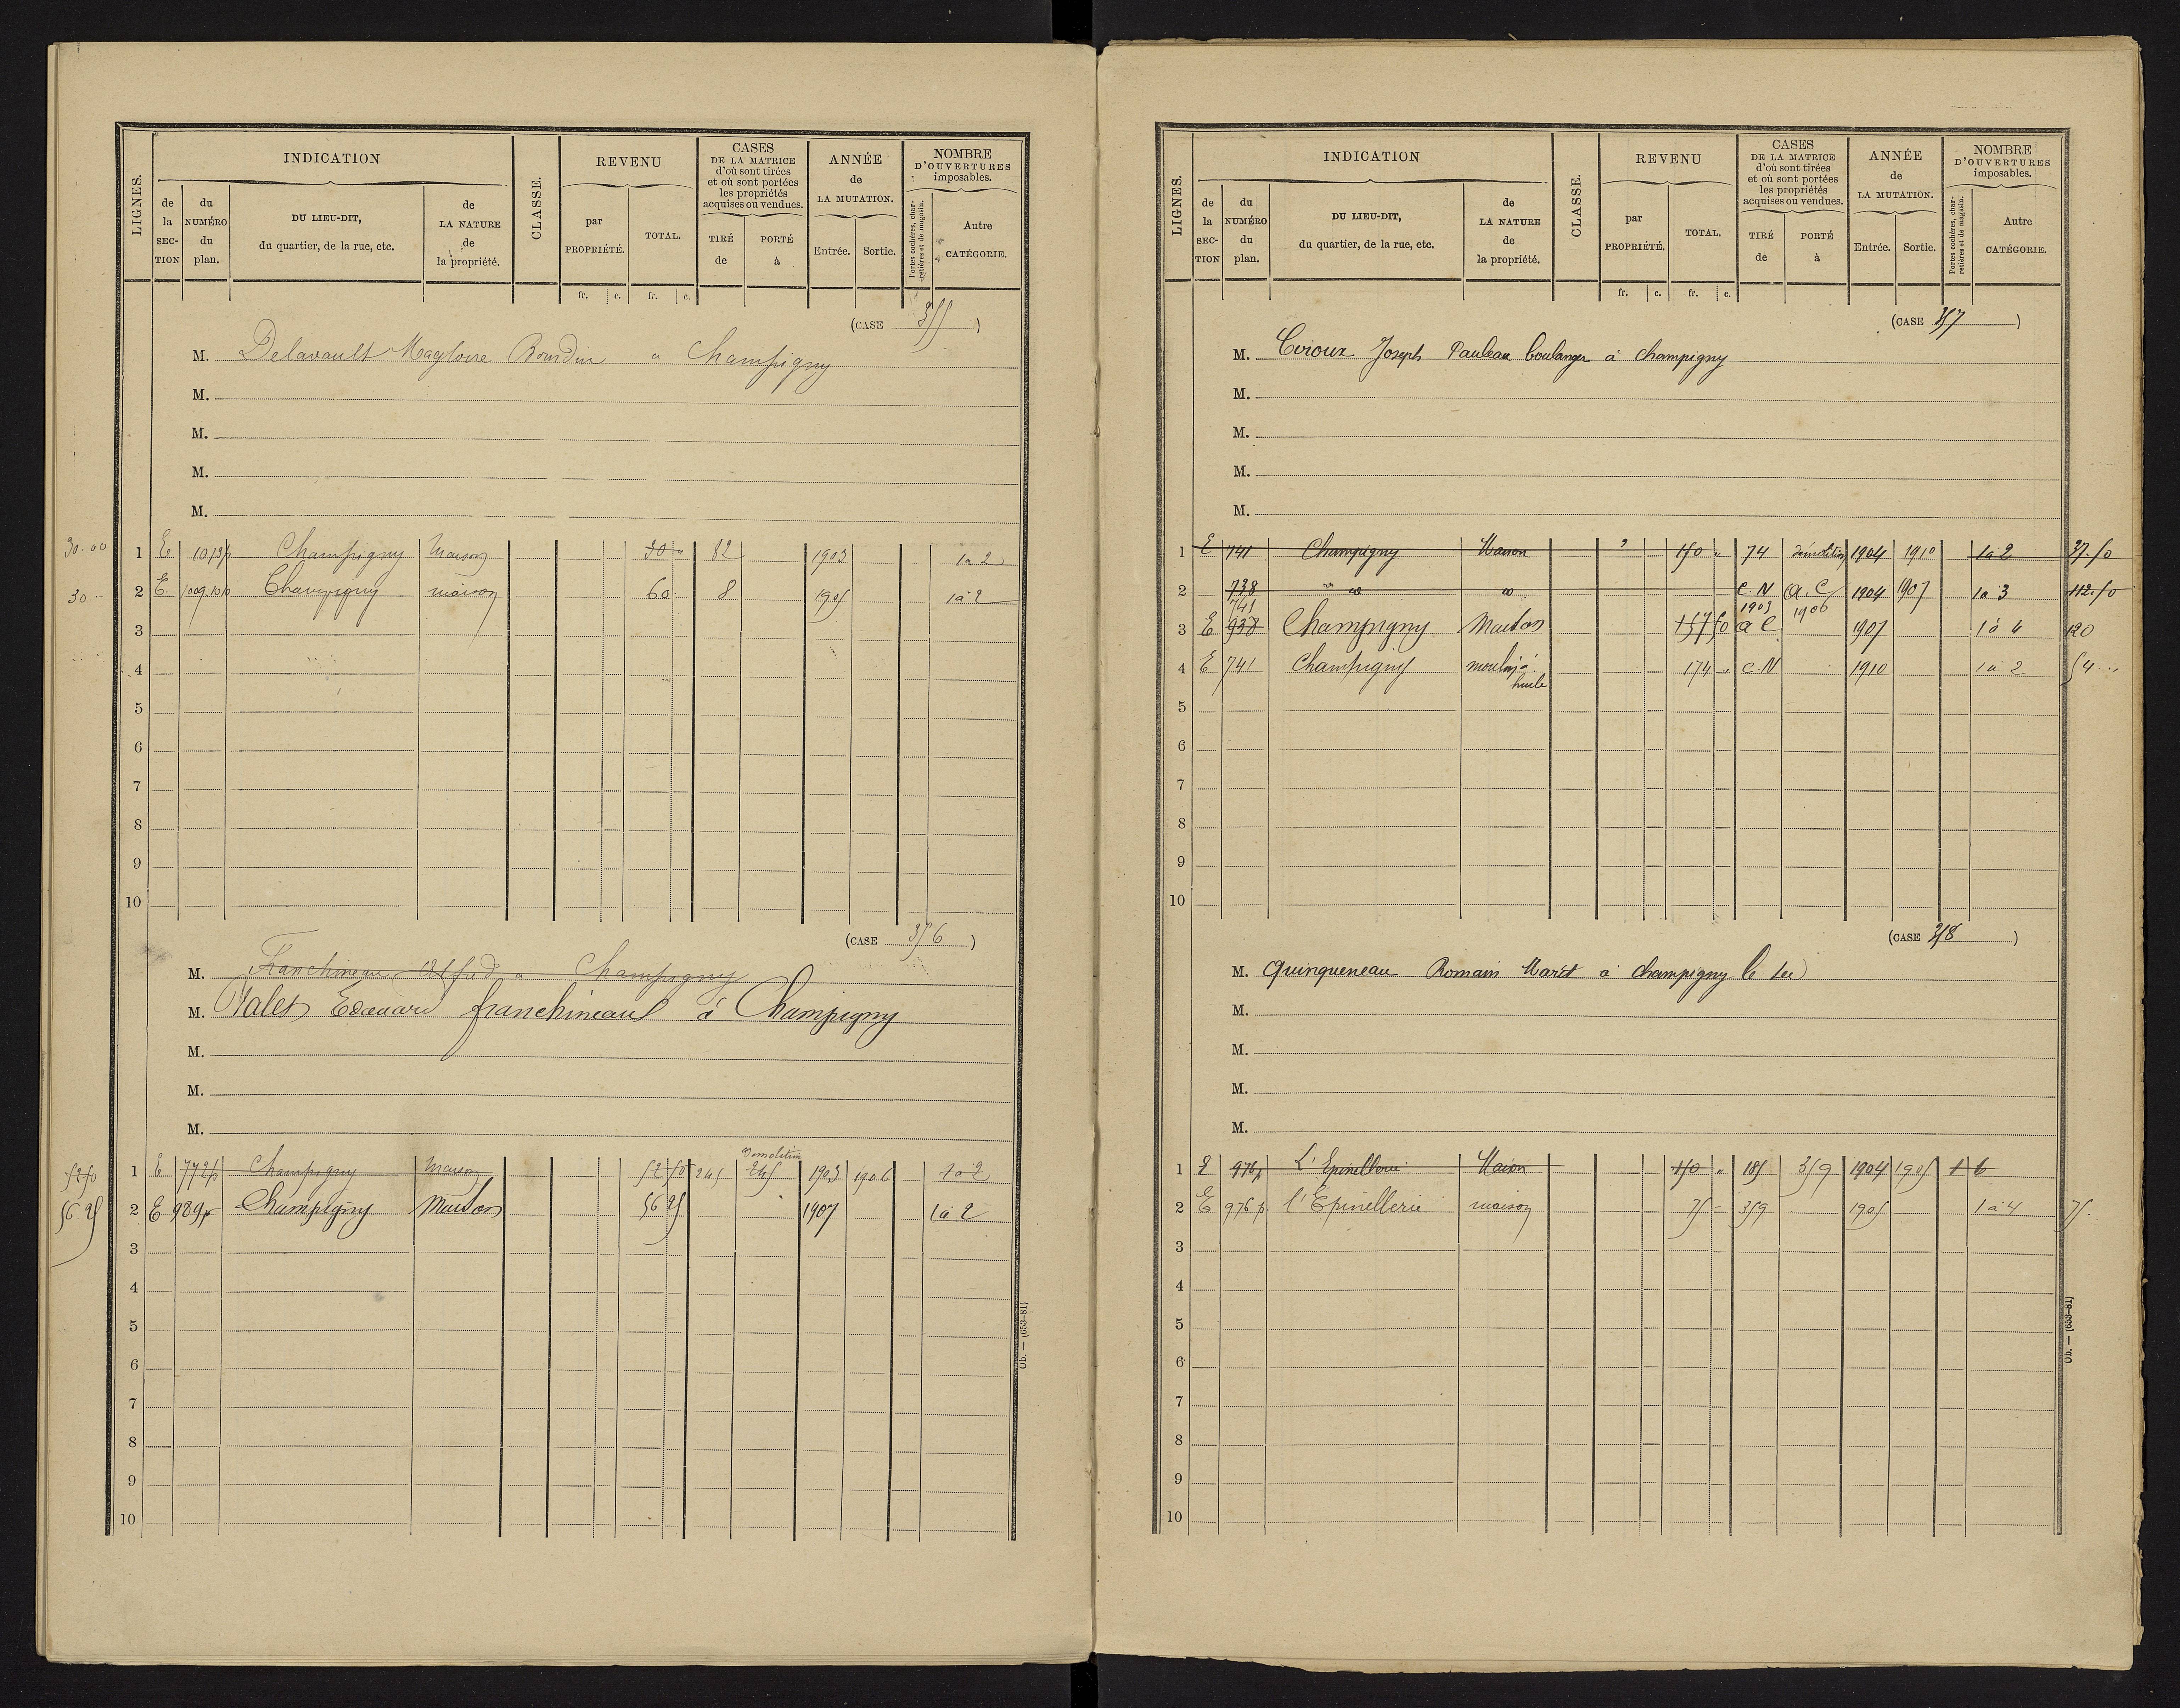 LIGNES. INDICATION CLASSE. REVENU CASES DE LA MATRICE d'où sont tirées et où sont portées les propriétés acquises ou vendues. ANNÉE de LA MUTATION. NOMBRE D'OUVERTURES imposables.
de la SECTION du NUMÉRO du plan. DU LIEU-DIT, du quartier, de la rue, etc. de LA NATURE de la propriété. par PROPRIÉTÉ. TOTAL. TIRÉ de PORTÉ à Entrée. Sortie. Portes cochères, charretières et de magasin. Autre CATÉGORIE.
fr. c. fr. c.
(CASE 355)
M. Delavault Magloire Bourdin a Champigny
M.
M.
M.
M.
30.00 1 E 1013p Champigny Maison 30 " 82 1903 1 a 2
30 " 2 E 1009.10p Champigny maison 60 8 1905 1 à 2
3
4
5
6
7
8
9
10
(CASE 356)
M. Franchineau Alfred a Champigny
M. Valet Edouard franchineau à Champigny
M.
M.
M.
demolition
52 50 1 E 772p Champigny Maison 52 50 245 245 1903 1906 1 a 2
56 25 2 E 989p Champigny Maison 56 25 1907 1 à 2
3
4
5
6
7
8
9
10
Ob. — (653-81)
LIGNES. INDICATION CLASSE. REVENU CASES DE LA MATRICE d'où sont tirées et où sont portées les propriétés acquises ou vendues. ANNÉE de LA MUTATION. NOMBRE D'OUVERTURES imposables.
de la SECTION du NUMÉRO du plan. DU LIEU-DIT, du quartier, de la rue, etc. de LA NATURE de la propriété. par PROPRIÉTÉ. TOTAL. TIRÉ de PORTÉ à Entrée. Sortie. Portes cochères, charretières et de magasin. Autre CATÉGORIE.
fr. c. fr. c.
(CASE 357)
M. Joseph Pauleau boulanger à champigny
M.
M.
M.
M.
1 E 741 Champigny Maison 150 " 74 démolition 1904 1910 1 a 2 37.50
2 738 C.N a.C 1904 1907 1 a 3 112.50
741 1903 1906
3 E 938 Champigny Maison 157 50 a C 1907 1 à 4 120
4 E 741 Champigny moulin à 174 " C.N 1910 1 a 2 54 "
huile
5
6
7
8
9
10
(CASE 358)
M. Quinqueneau Romain Maret à champigny le sec
M.
M.
M.
M.
1 E 976p L'Epinellerie Maison 150 " 185 359 1904 1905 1 6
2 E 976p. l'Epinellerie maison 75 359 1905 1 à 4 75.
3
4
5
6
7
8
9
10
Ob. — (653-81)